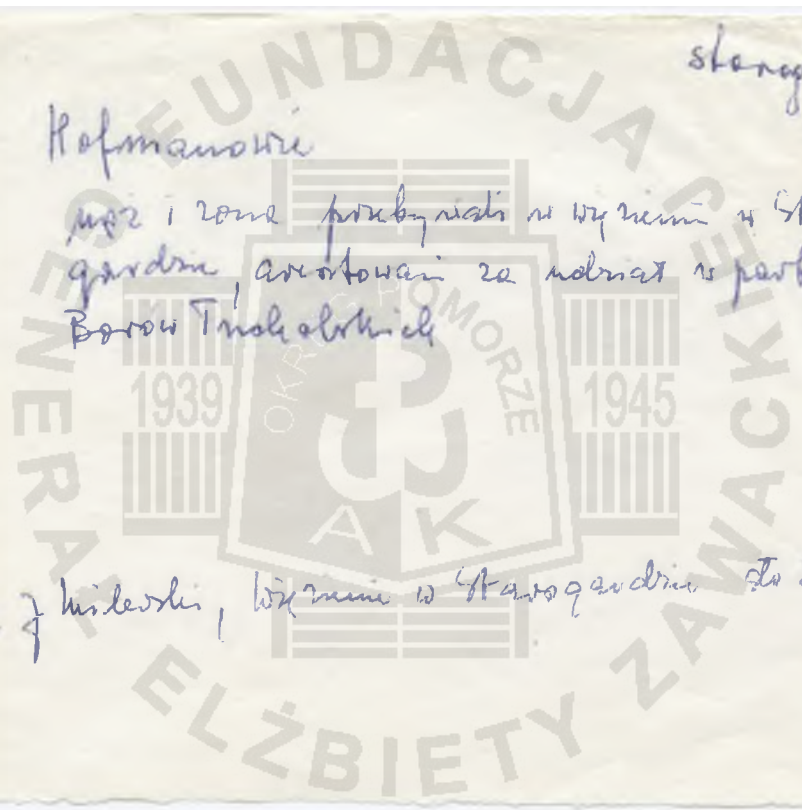 starog
Hofmanowie
mąż i żona przebywali w więzieniu w St
gardzie, aresztowani za udział w part
Borów Tucholskich
J Milewski, Więzienie w Starogardzie sto
FUNDACJA GENERAŁ ELŻBIETY ZAWACKIEJ
OKRĘG POMORZE
1939
1945
AK